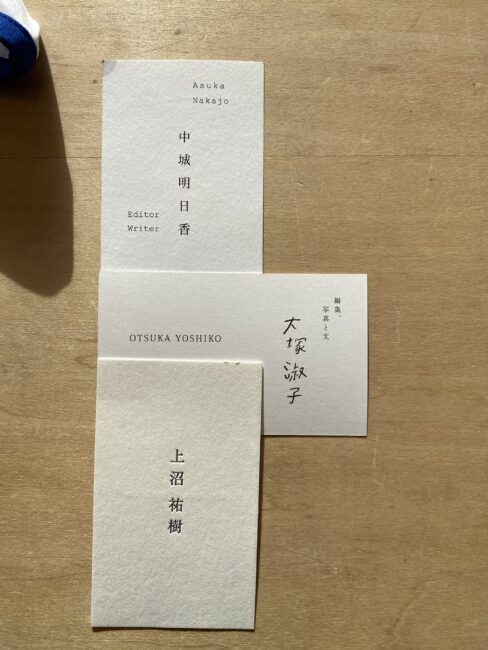 Asuka
Nakajo
中城明日香
Editor
Writer
編集、
写真と文
大塚淑子
OTSUKA YOSHIKO
上沼祐樹